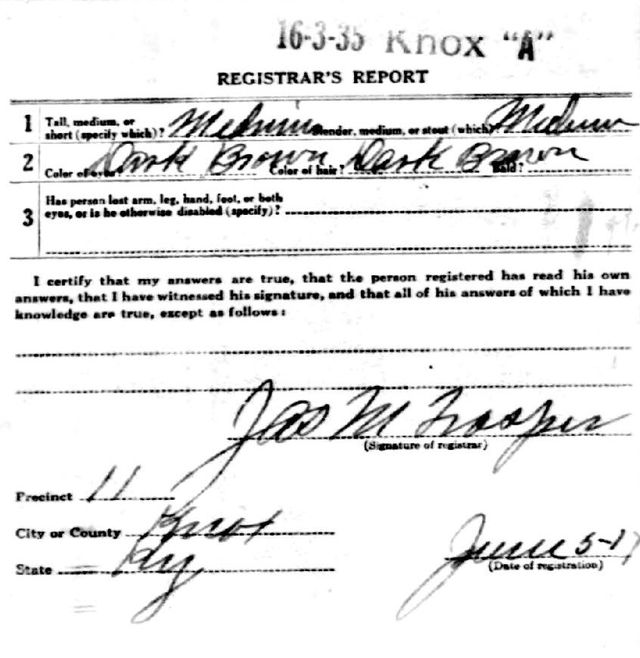 16-3-35 Knox "A"
REGISTRAR'S REPORT
1 Tall, medium, or short (specify which)? Medium Slender, medium, or stout (which)? Medium
2 Color of eyes? Dark Brown Color of hair? Dark Brown Bald?
3 Has person lost arm, leg, hand, foot, or both
eyes, or is he otherwise disabled (specify)?
I certify that my answers are true, that the person registered has read his own
answers, that I have witnessed his signature, and that all of his answers of which I have
knowledge are true, except as follows:
Jas M
(Signature of registrar)
Precinct 11
City or County Knox
State Ky
June 5-17
(Date of registration)